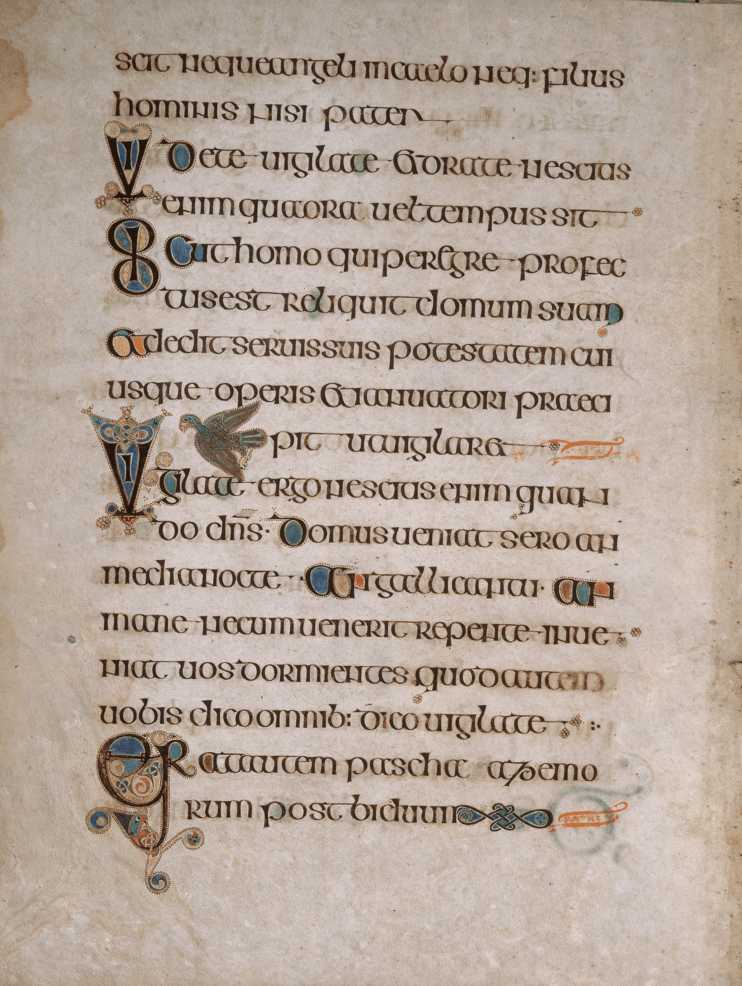 scit neque angeli in caelo neq: filius
hominis nisi pater
Videte uigilate et orate nescitis
enim quaora uel tempus sit
Sicut homo qui peregre profec
tus est reliquit domum suam
et dedit seruis suis potestatem cui
usque operis et ianuatori praeci
pit uti uigilaret
Vigilate ergo nescitis enim quan
do dn̄s· domus ueniat sero an
media nocte · an galli cantu · an
mane ne cum uenerit repente inue
niat uos dormientes quod autem
uobis dico omnib: dico uigilate
Erat autem pascha azemo
rum post biduum